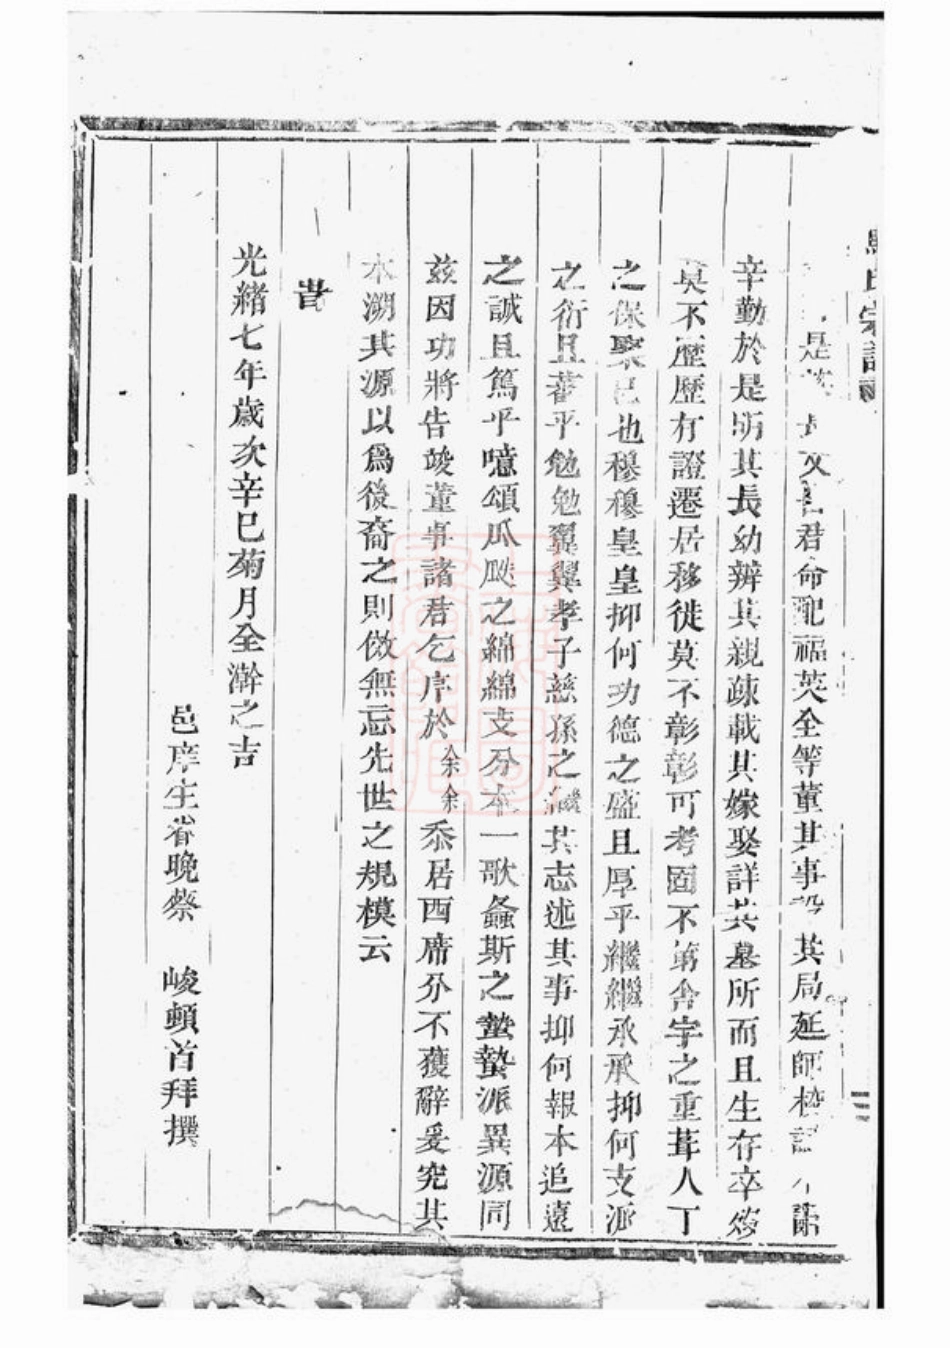 氏宗譜
是 長文 君命配福英全等董其事 其局延師 
辛勤於是昉其長幼辨其親疎載其嫁娶詳其墓所而且生存卒葬
莫不歷歷有證遷居移徙莫不彰彰可考固不第舍宇之重葺人丁
之保聚已也穆穆皇皇抑何功德之盛且厚乎繼繼承承抑何支派
之衍且蕃乎勉勉翼翼孝子慈孫之 其志述其事抑何報本追遠
之誠且篤乎噫頌瓜瓞之綿綿支分本一歌螽斯之蟄蟄派異源同
茲因功將告竣董事諸君乞序於余余忝居西席分不獲辭爰究其
本溯其源以爲後裔之則傚無忘先世之規模云
旹
光緒七年歲次辛巳菊月全澣之吉
邑庠生省晚蔡 峻頓首拜撰